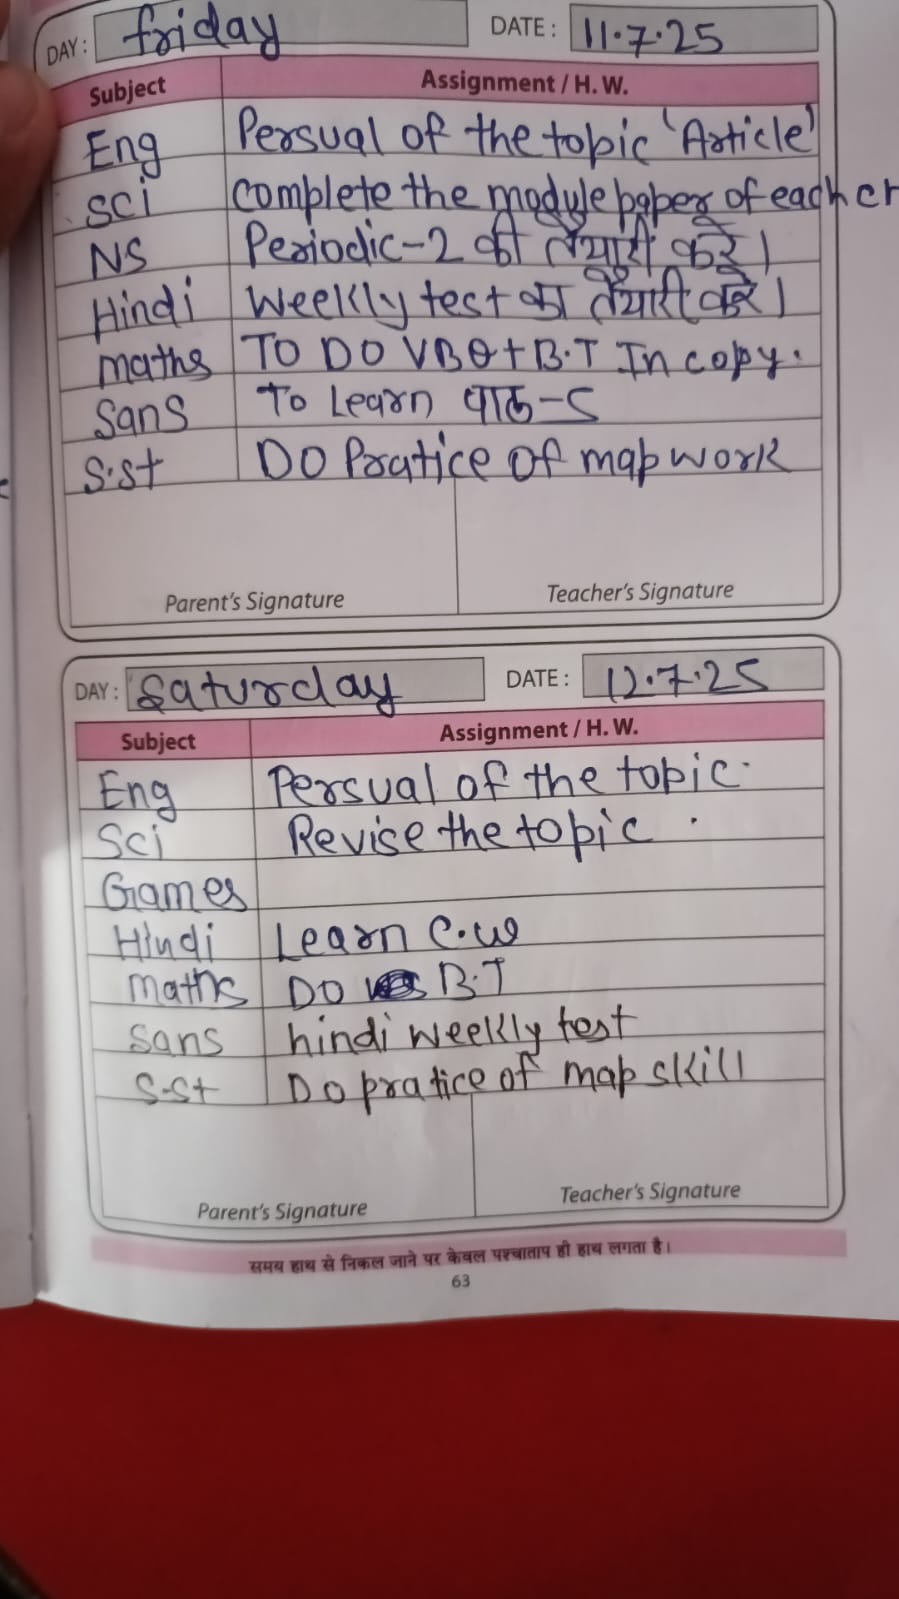 DAY: friday DATE: 11.7.25
Subject Assignment / H. W.
Eng Persual of the topic 'Article'
sci complete the module paper of each ch
NS Periodic-2 की तैयारी करे।
Hindi Weekly test का तैयारी करे।
maths TO DO VBQ+B.T In copy.
Sans To Learn पाठ-5
S.st DO Pratice of map work
Parent's Signature Teacher's Signature
DAY: Saturday DATE: 12.7.25
Subject Assignment / H. W.
Eng Persual of the topic.
Sci Revise the topic.
Games
Hindi Learn C.W
maths DO B.T
Sans hindi weekly test
S.st Do pratice of map skill
Parent's Signature Teacher's Signature
समय हाथ से निकल जाने पर केवल पश्चाताप ही हाथ लगता है।
63